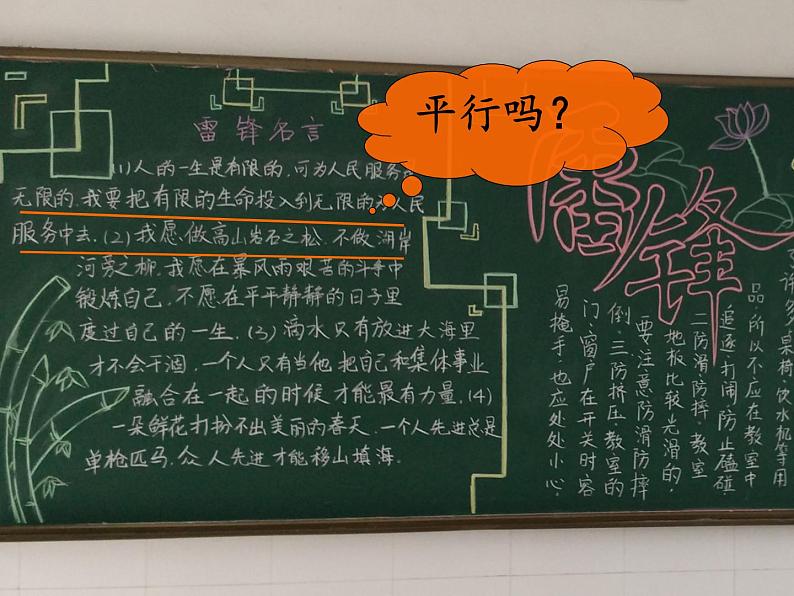 平行吗？
雷锋名言
(1)人的一生是有限的,可为人民服务是
无限的,我要把有限的生命投入到无限的为人民
服务中去.(2)我愿做高山岩石之松,不做湖岸
河旁之柳.我愿在暴风雨艰苦的斗争中
锻炼自己,不愿在平平静静的日子里
度过自己的一生.(3)滴水只有放进大海里
才不会干涸,一个人只有当他把自己和集体事业
融合在一起的时候才能最有力量.(4)
一朵鲜花打扮不出美丽的春天,一个人先进总是
单枪匹马,众人先进才能移山填海。
雷锋
许多桌椅、饮水机等用
品,所以不应在教室中
追逐、打闹,防止磕碰
二、防滑防摔:教室
地板比较光滑的,
要注意防滑防摔
倒.三、防挤压:教室的
门、窗户在开关时容
易掩手,也应处处小心.